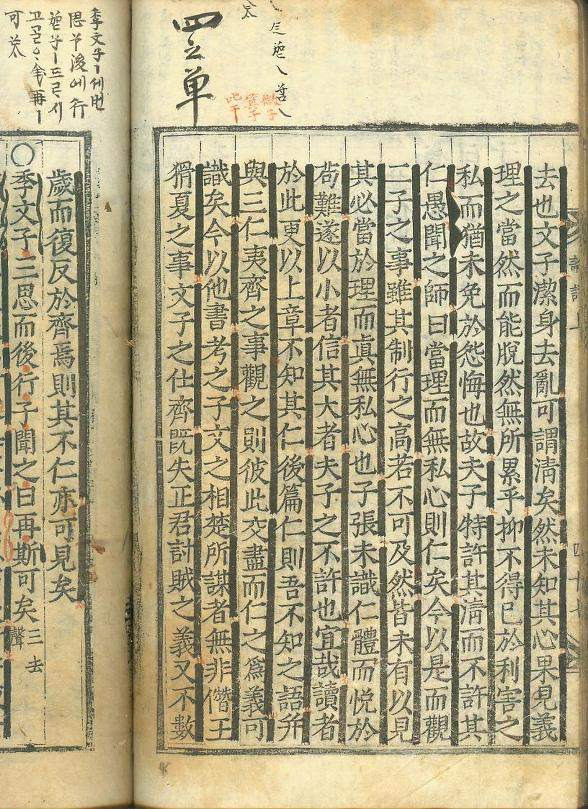 四之單
去也文子潔身去亂可謂清矣然未知其心果見義
理之當然而能脫然無所累乎抑不得已於利害之
私而猶未免於怨悔也故夫子特許其清而不許其
仁愚聞之師曰當理而無私心則仁矣今以是而觀
二子之事雖其制行之高若不可及然皆未有以見
其必當於理而眞無私心也子張未識仁體而悅於
苟難遂以小者信其大者夫子之不許也宜哉讀者
於此更以上章不知其仁後篇仁則吾不知之語幷
與三仁夷齊之事觀之則彼此交盡而仁之爲義可
識矣今以他書考之子文之相楚所謀者無非僭王
猾夏之事文子之仕齊旣失正君討賊之義又不數
季文子ㅣ세번
歲而復反於齊焉則其不仁亦可見矣
○季文子三思而後行子聞之曰再斯可矣三去聲